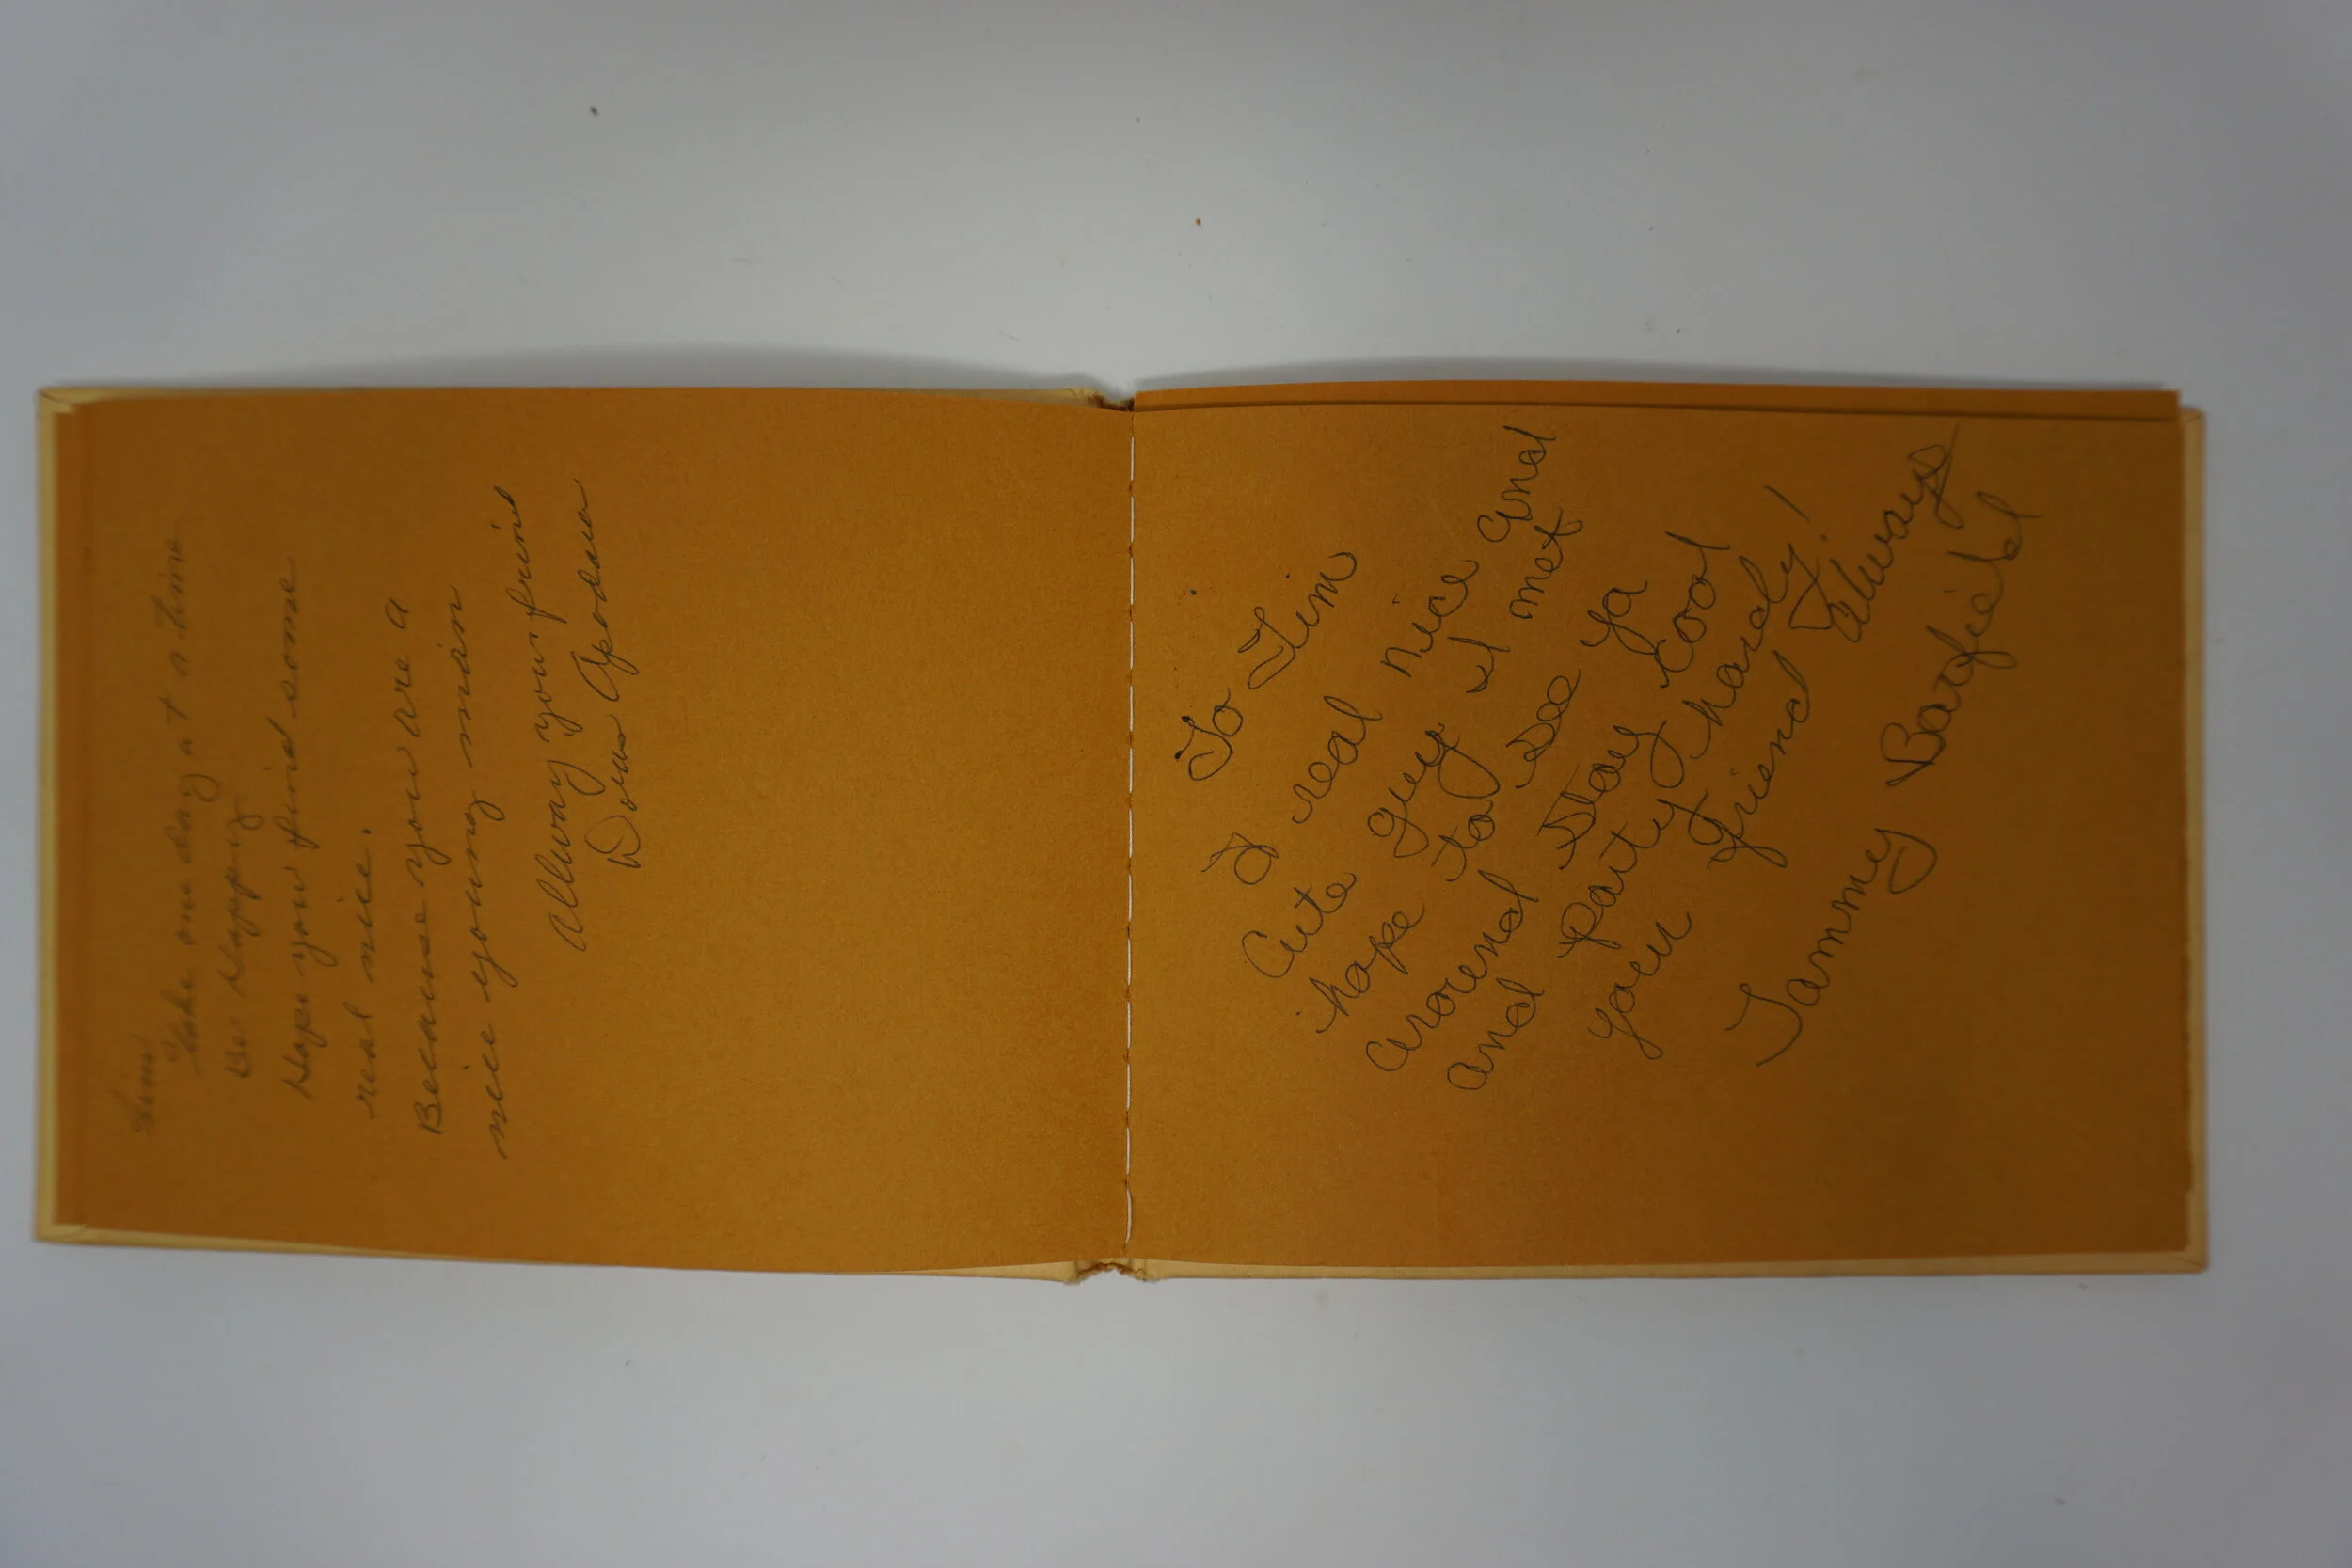 Jim
Take one day at a time
Be Happy
Hope you find some
real nice.
Because you are a
nice young man
Allway your frind
Apodaca
To Jim
A real nice and
cute guy I met
hope to see ya
around Stay cool
and party hardy!
your friend Always
Tammy Barfield